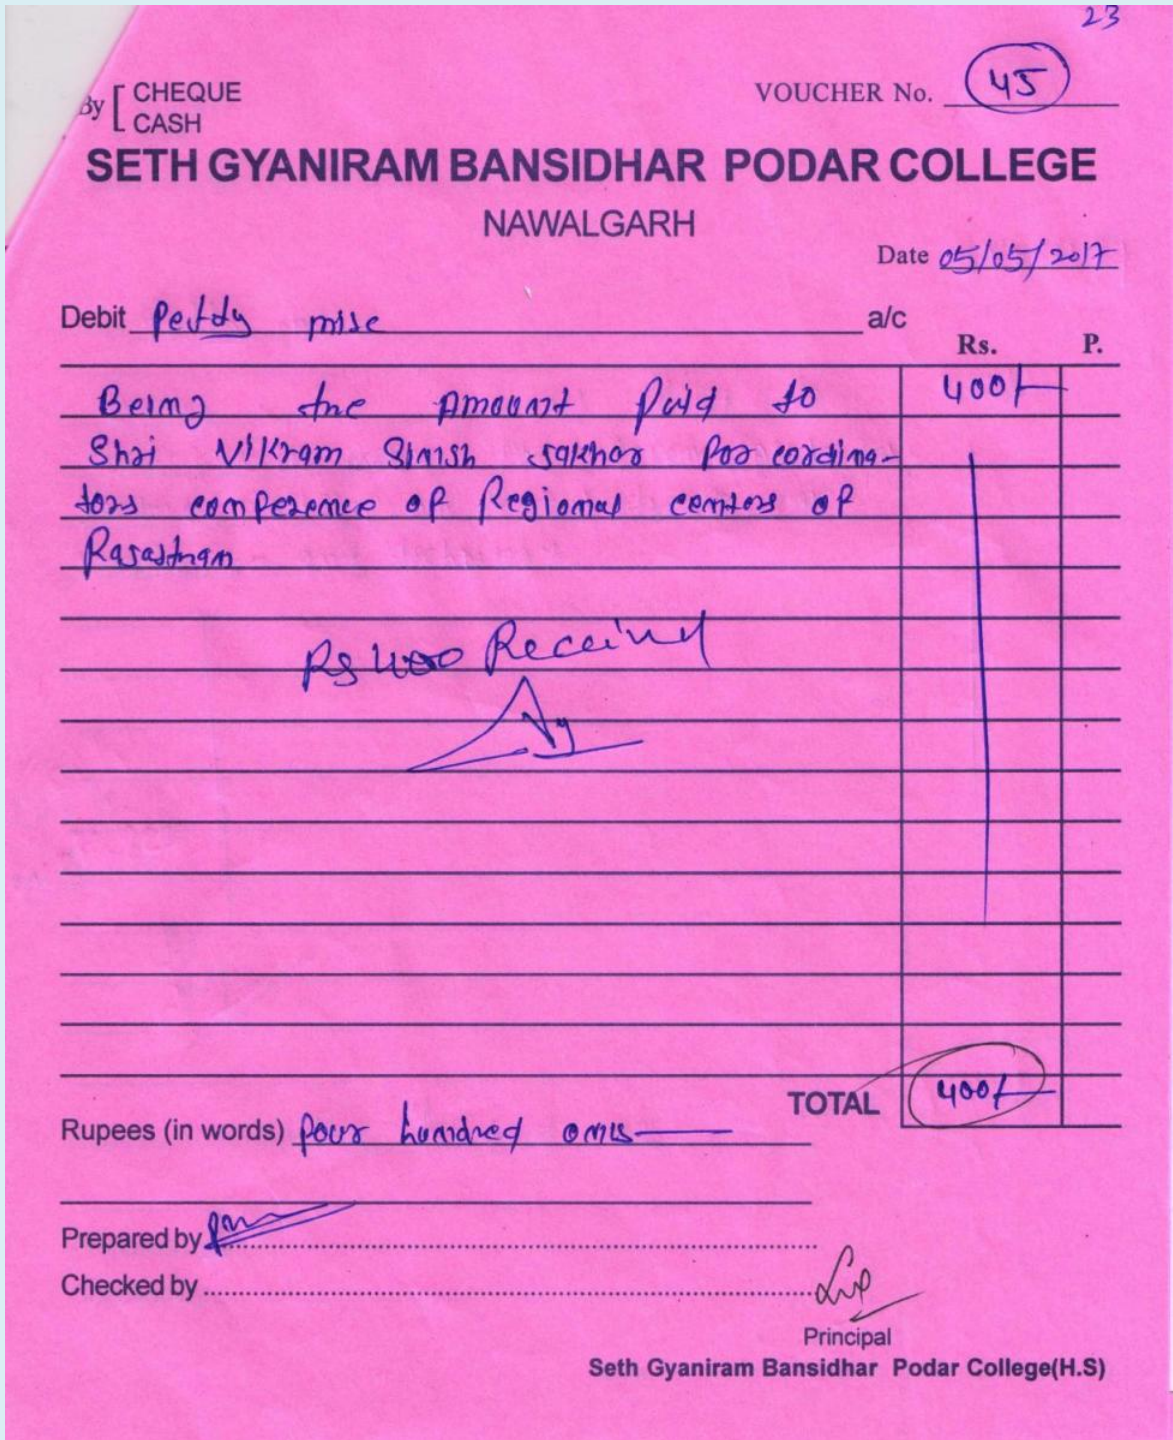 23
By [ CHEQUE
CASH
VOUCHER No. 45
SETH GYANIRAM BANSIDHAR PODAR COLLEGE
NAWALGARH
Date 05/05/2017
Debit Peddy misc a/c
Rs. P.
Being the Amount Paid to 400/-
Shri Vikram Singh Jakhar For cordina-
tors conference of Regional centers of
Rajasthan
Rs 400 Received
TOTAL 400/-
Rupees (in words) Four hundred only
Prepared by
Checked by
Principal
Seth Gyaniram Bansidhar Podar College(H.S)